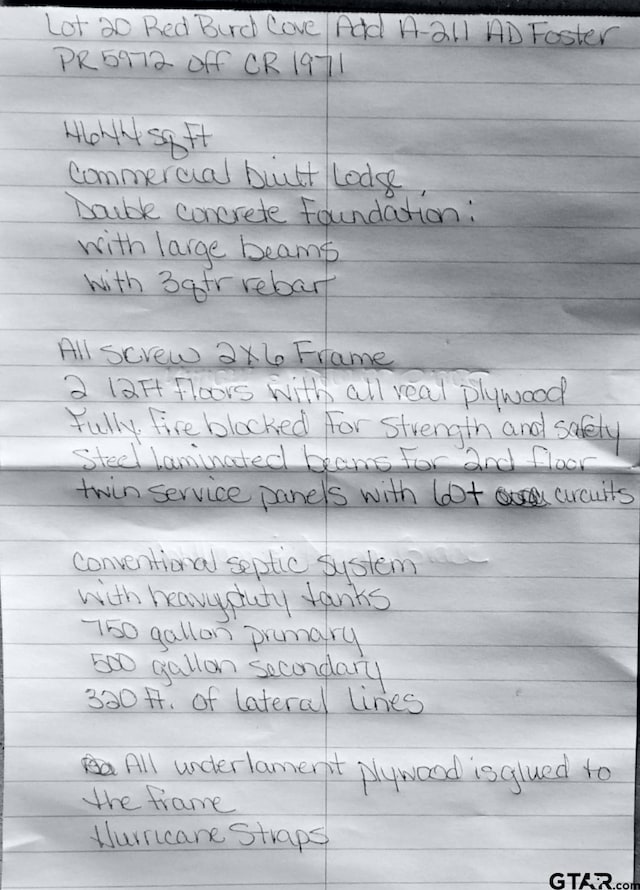 Lot 20 Red Burd Cove Add A-211 AD Foster
PR5972 off CR 1971
4644 sqft
Commercial built Lodge,
Double concrete foundation:
with large beams
with 3qtr rebar
All screw 2x6 Frame
2 12ft floors with all real plywood
Fully fire blocked for strength and safety
Steel laminated beams for 2nd floor
twin service panels with 60+ circuits
conventional septic system
with heavyduty tanks
750 gallon primary
500 gallon secondary
320 ft. of lateral lines
All underlament plywood is glued to
the frame
Hurricane Straps
GTAR.com